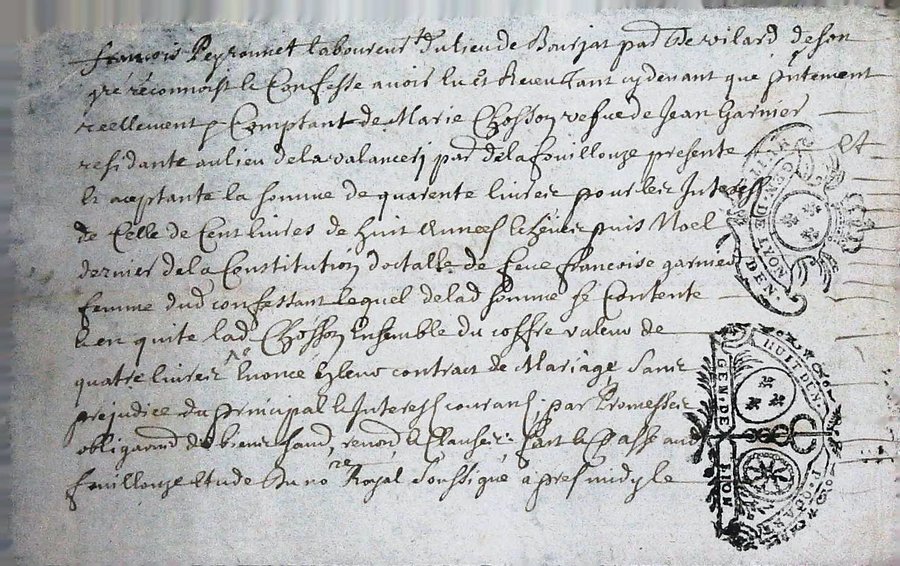 françois Peyronnet laboureur du lieu de Bourjat par de vilard de son
gré reconnoist le Confesse avoir lu et Receu tant cydevant que pntement
reellement Comptant de Marie Chosson vefve de Jean Garnier
residante au lieu de la valancery par de la fouillouze presente Et
Et aceptante la somme de quarente livres pour les Interest
de Celle de Cent livres de huit Années Echeues puis Noel
dernier de la Constitution doctalle de feue françoise garnier
femme dud confessant lequel de lad somme se Contente
Et en quite lad Chosson Ensemble du coffre valeur de
quatre livres Enoncé contract de Mariage, Sans
prejudice du principal Et Interest courant, par Promesses
obligaond de biens renond Et Clauses; fait Et Passé au
fouillouze Etude du no.re Royal Soussigné le
GEN. DE LYON
DEN.
HUIT DEN.
GEN. DE
LION